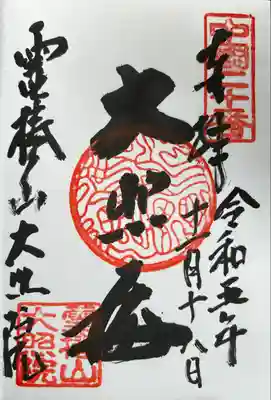 中國二十番
奉拝
令和五年
十一月十八日
大悲
靈椿山大照院
靈椿山
大照院